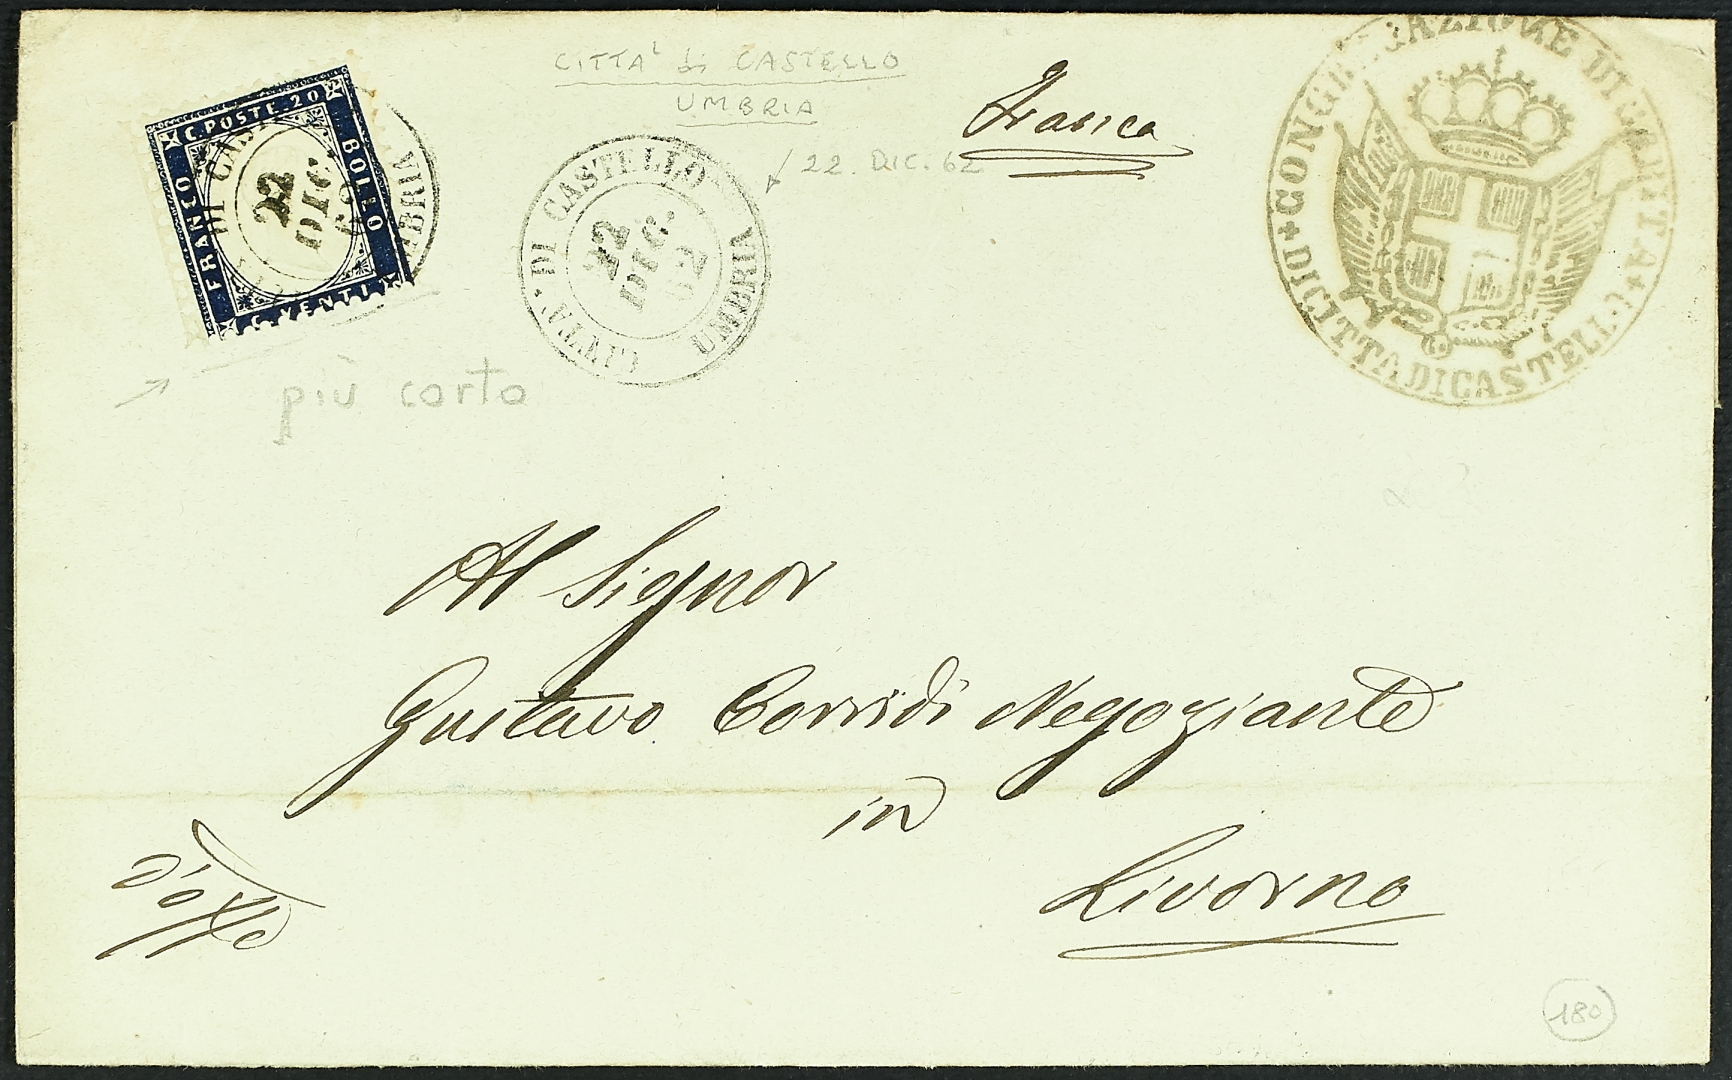 CITTA' di CASTELLO
UMBRIA
22. DIC. 62
Franca
C. POSTE. 20
FRANCO
BOLLO
C. VENTI
DI CAST
22
DIC.
62
BRIA
CITTA' DI CASTELLO
22
DIC.
62
UMBRIA
CONGREGAZIONE DI CARITA
DI CITTA DI CASTELLO
più corto
Al Signor
Gustavo Corridi Negoziante
in
Livorno
D'off°
180